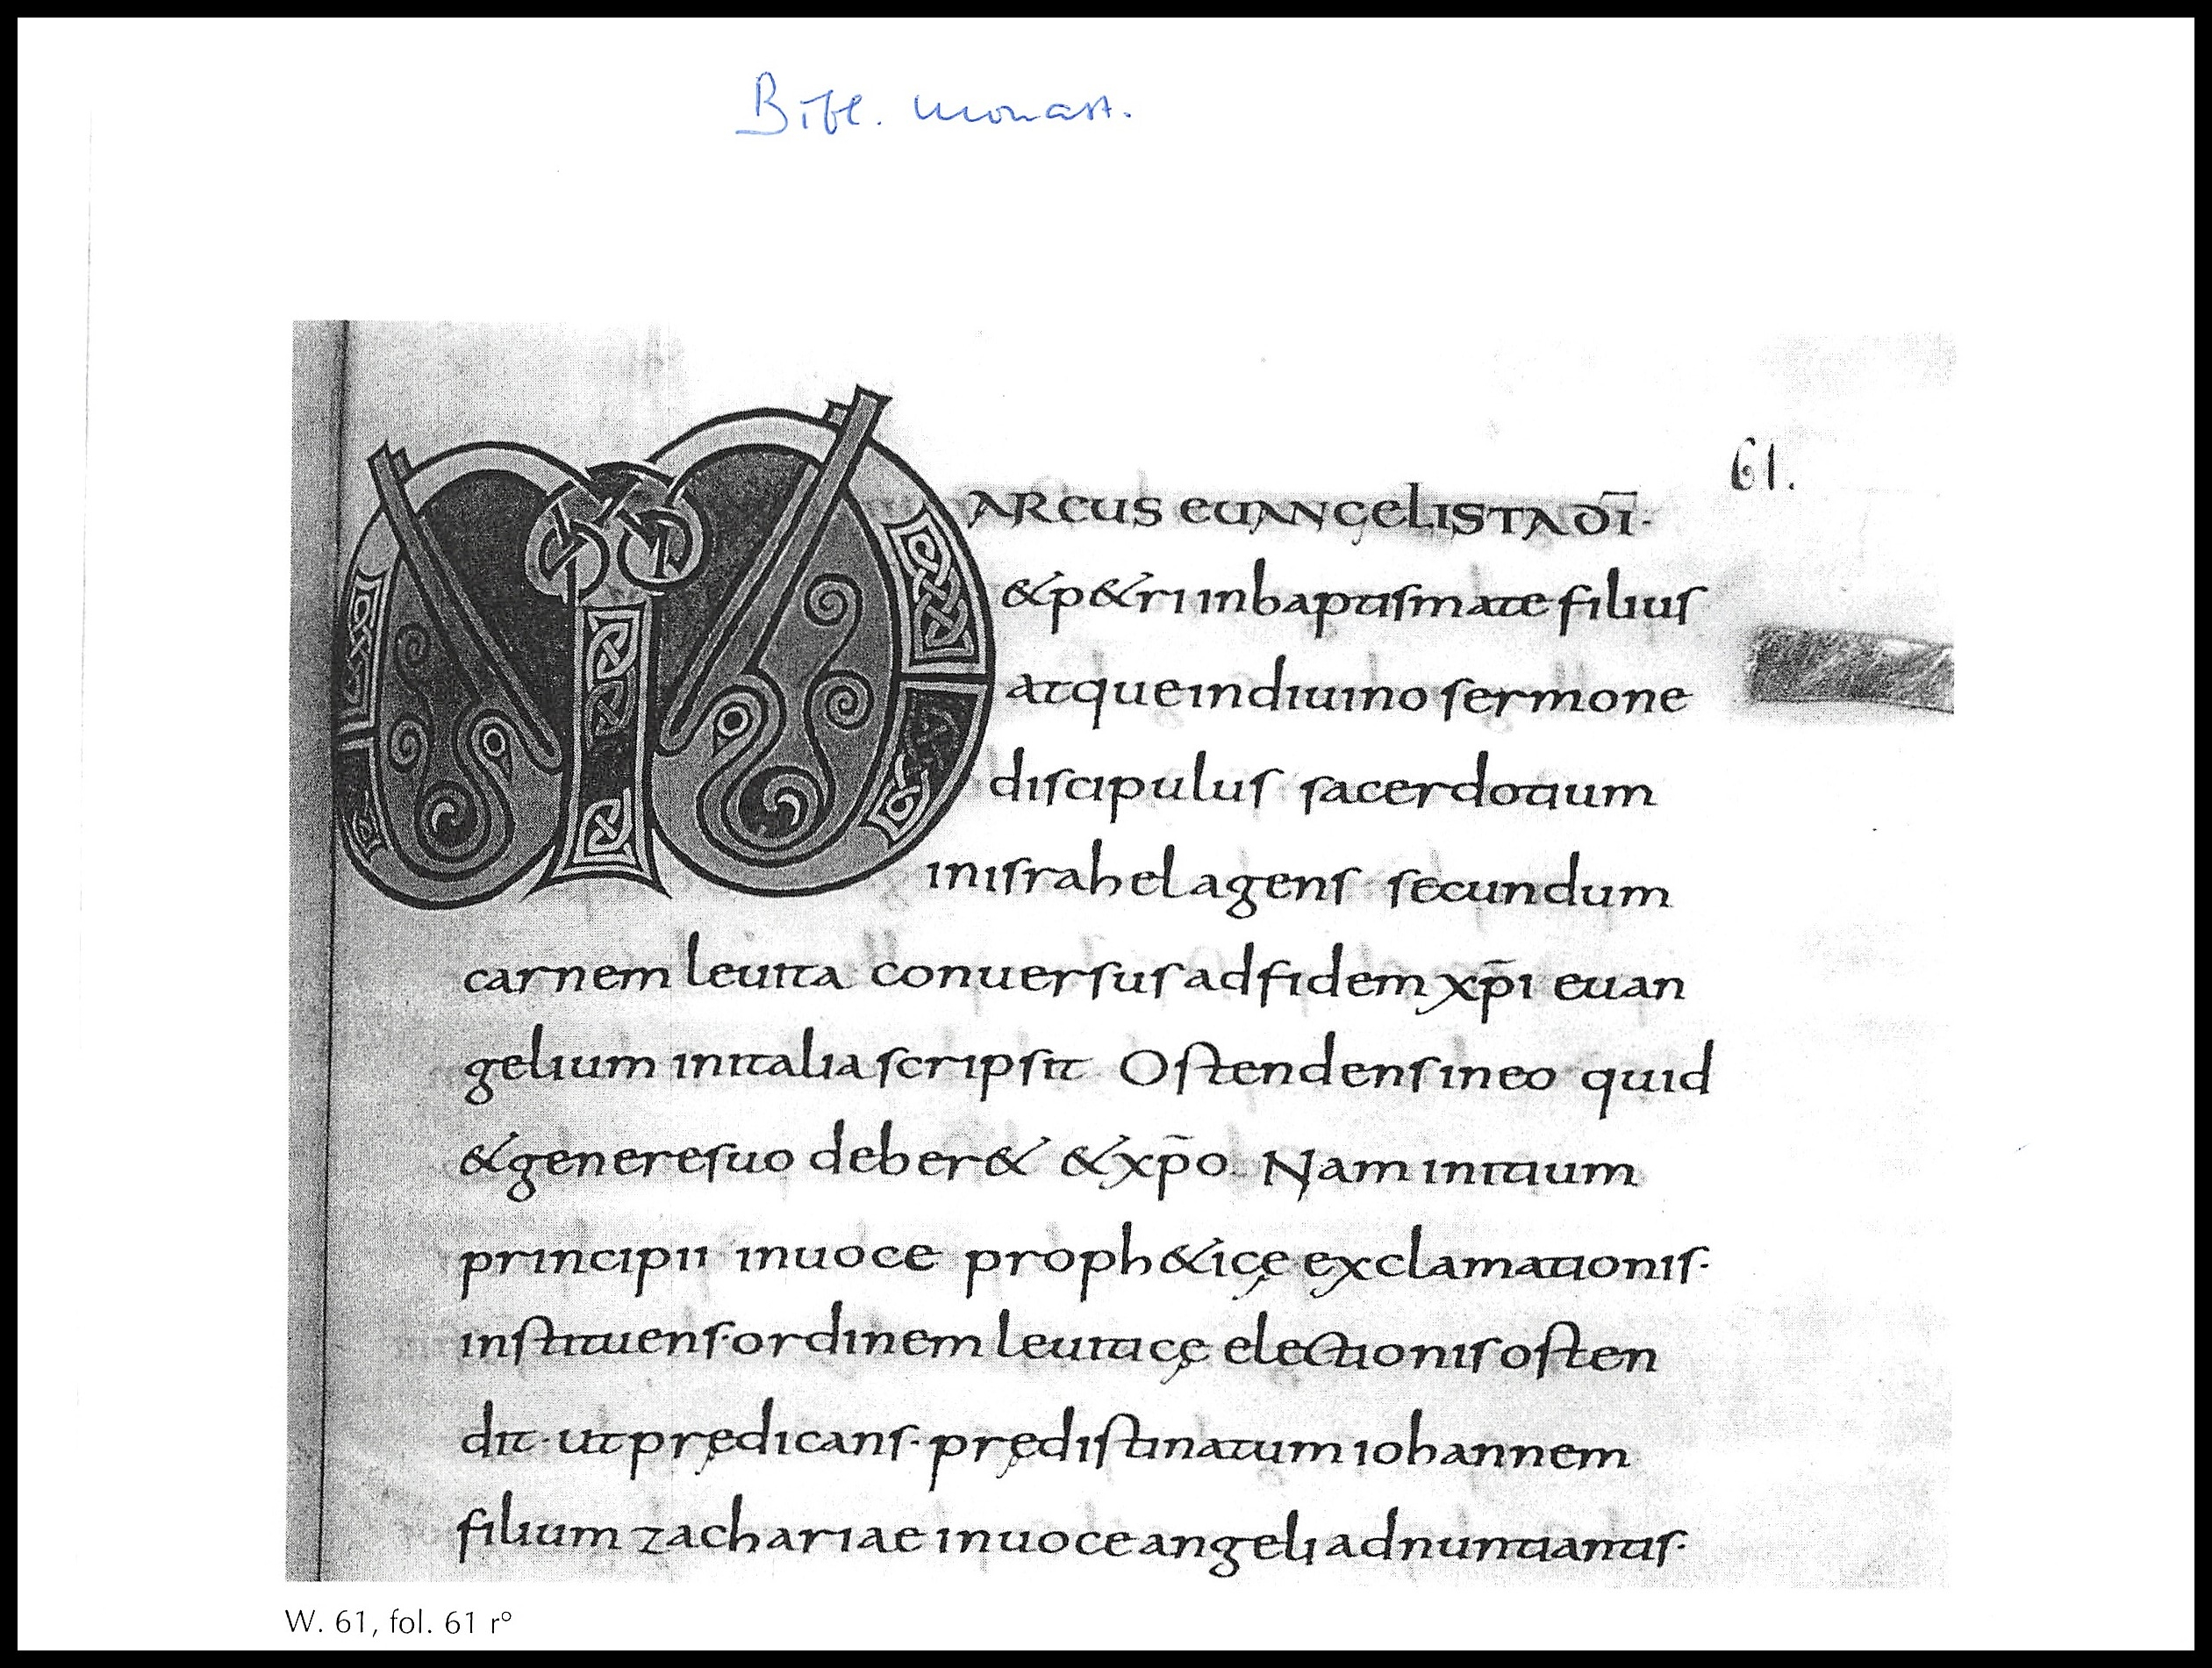 Bibl. monast.
61.
MARCUS EUANGELISTA DĪ·
& p&ri in baptismate filius
atque in diuino sermone
discipulus sacerdotium
in israhel agens secundum
carnem leuita conuersus ad fidem xp̄i euan
gelium in italia scripsit Ostendens in eo quid
& genere suo deber& & xp̄o. Nam initium
principii in uoce proph&icę exclamationis·
instituens· ordinem leuiticę electionis osten
dit· ut prędicans· prędistinatum iohannem
filium zachariae in uoce angeli adnuntiantis·
W. 61, fol. 61 r°